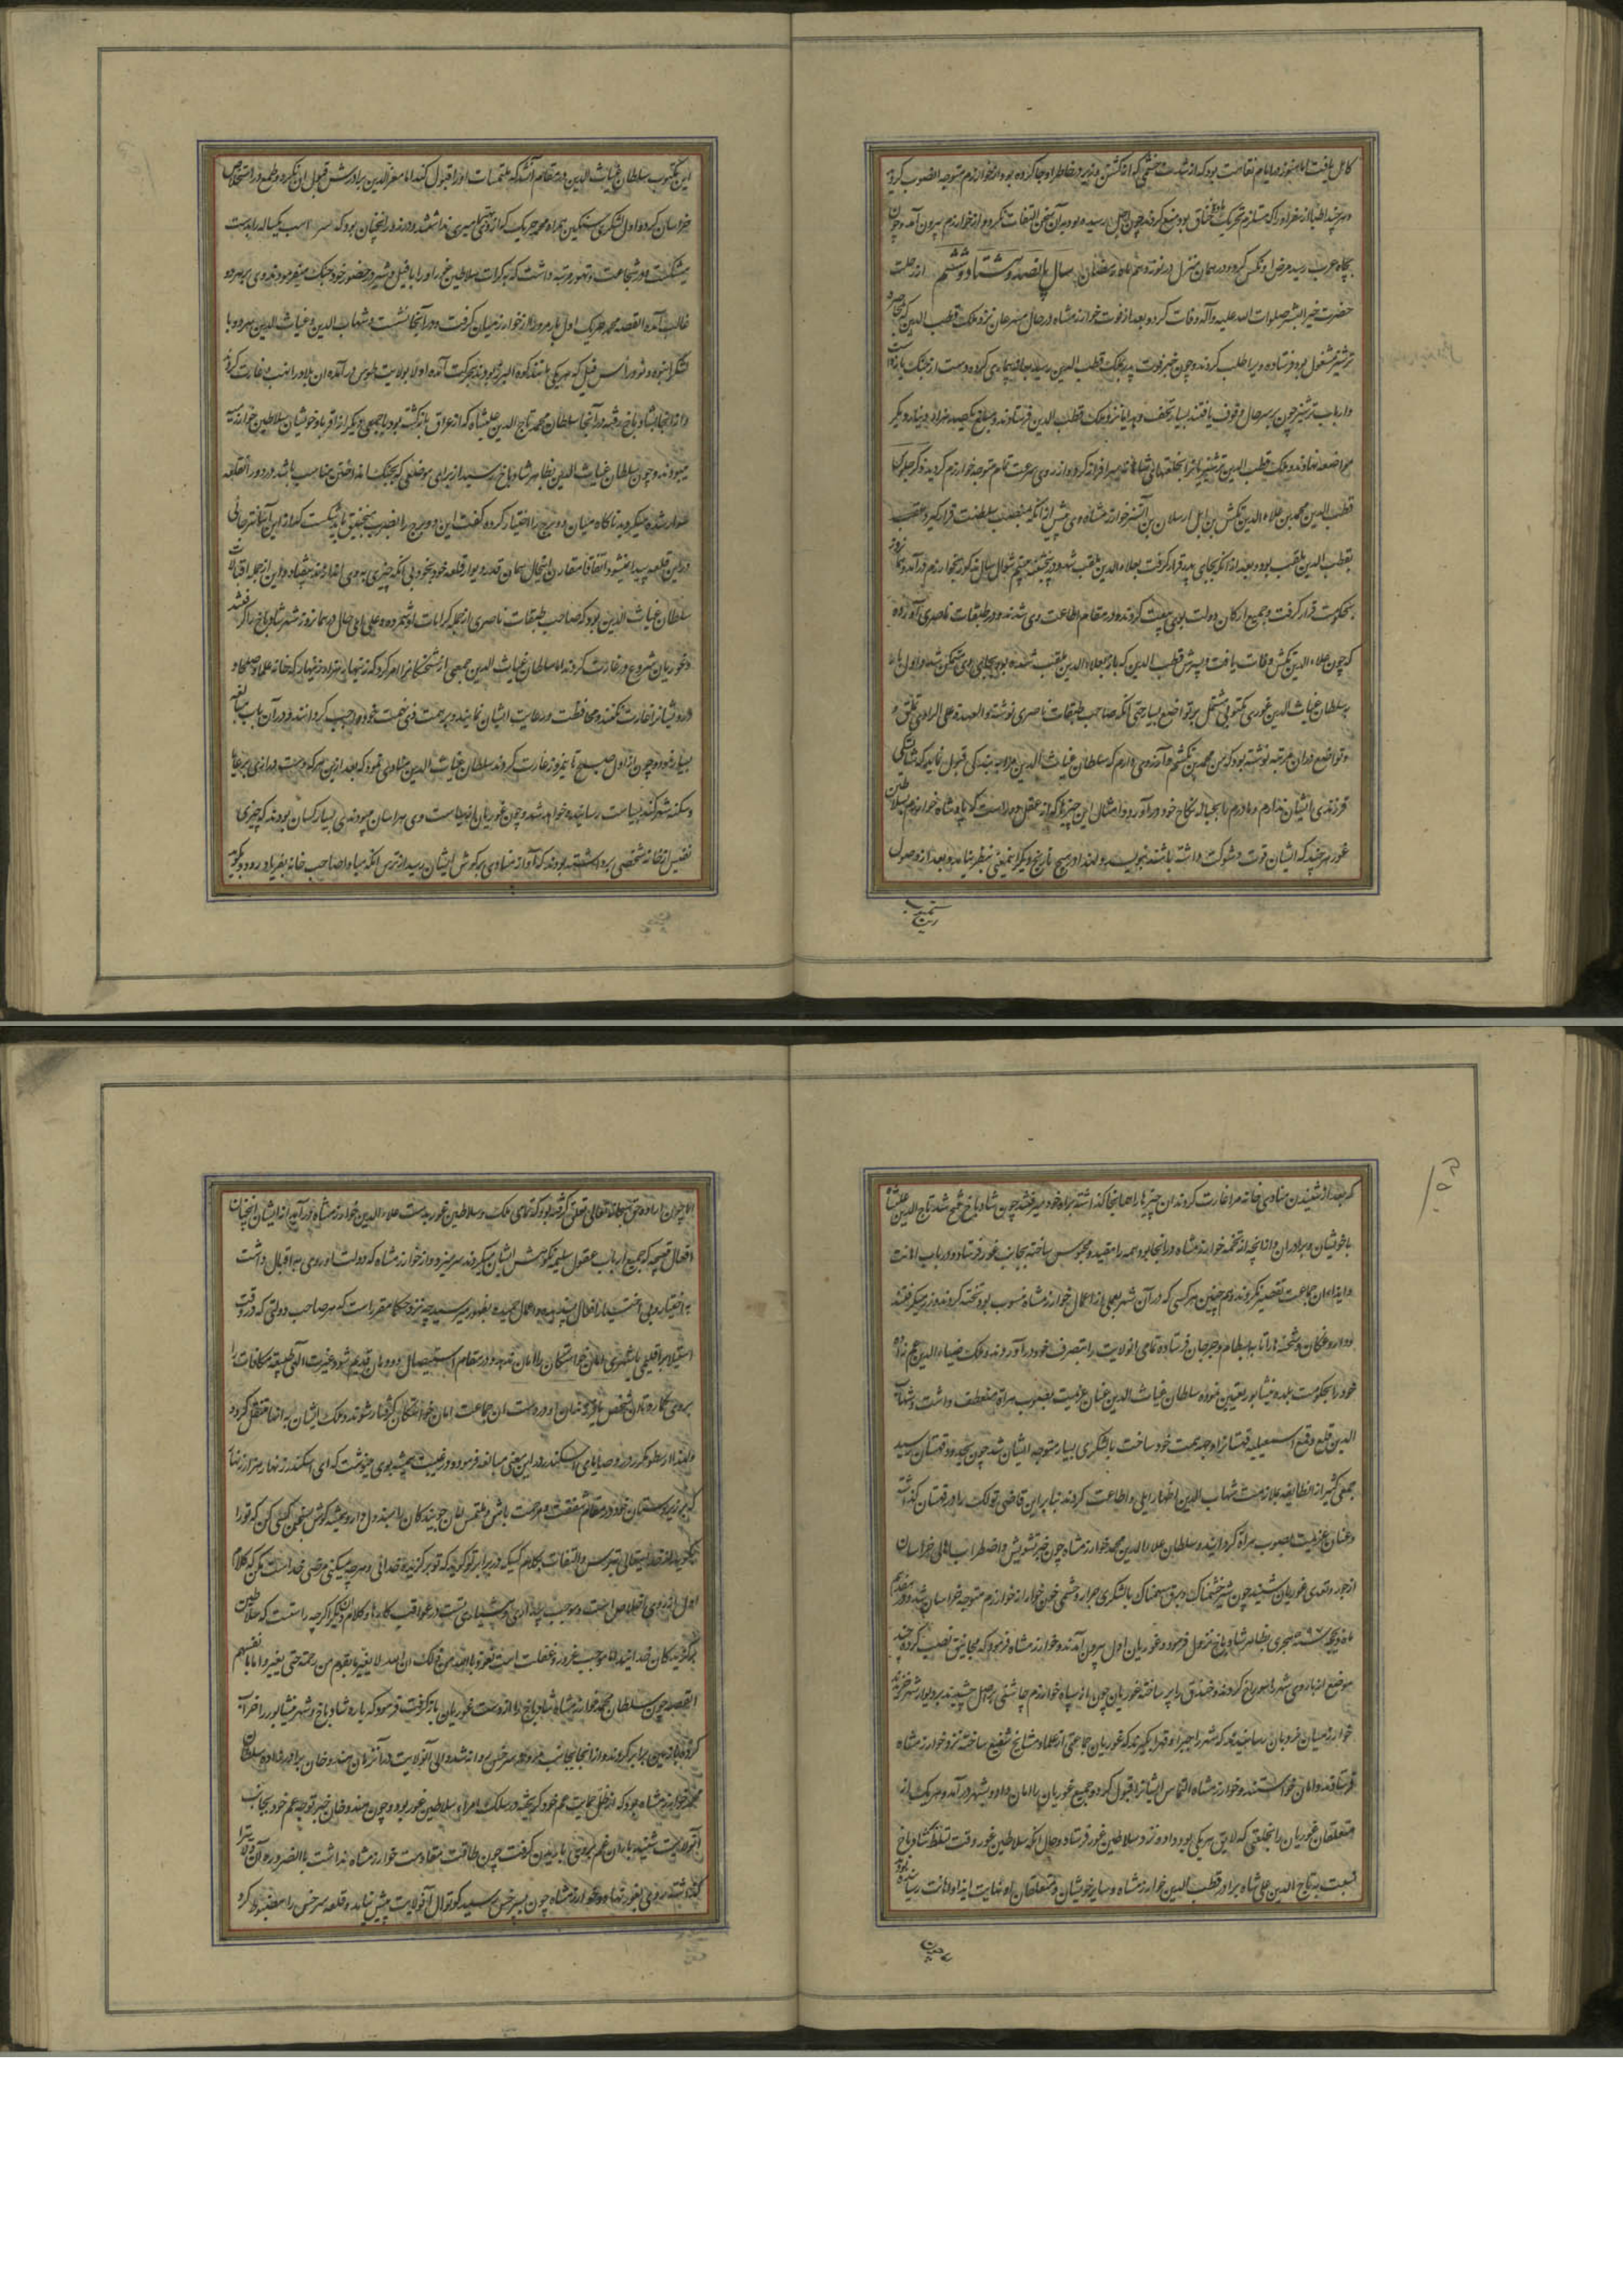 کامل یافت اما هنوز در ایام نقاهت بود که از شدت خشمی که از کشتن وزیر در خاطر او جا کرده بود از خوارزم متوجه آنصوب گردید
و هر چند اطبا از سفر او را که مستلزم تحریک ماده خناق بود منع کردند چون اجل رسیده بود بدان سخن التفات نکرد و از خوارزم بیرون آمد و چون
بچاه عرب رسید مرض او نکس کرد و در همان منزل در نوزدهم ماه رمضان سال پانصد و هشتاد و ششم از رحلت
حضرت خیر البشر صلوات الله علیه و آله وفات کرد و بعد از فوت خوارزمشاه در حال مسرعان نزد ملک قطب الدین که بمحاصره
ترشیز مشغول بود فرستاده ویرا طلب کردند و چون خبر فوت پدر بملک قطب الدین رسید بهانه بیماری کرده دست از جنگ بازداشت
و ارباب ترشیز چون بر سر حال وقوف یافتند بسیار تحف و هدایا نزد ملک قطب الدین فرستادند و مبلغ یکصد هزار دینار دیگر
بمواضعه نهادند و ملک قطب الدین ترشیزیانرا بخلعتهای شاهانه سرافراز کرد و از روی سرعت تمام متوجه خوارزم گردید ذکر جلوس
قطب الدین محمد بن علاء الدین تکش بن ایل ارسلان بن اتسز خوارزمشاه وی پیش از آنکه بمنصب سلطنت قرار گیرد ملقب
بقطب الدین ملقب بود و بعد از آنکه بجای پدر قرار گرفت بعلاء الدین ملقب شد و در پنجشنبه بیستم شوال سال مذکور بخوارزم در آمد و هم آنروز
بحکومت قرار گرفت و جمیع ارکان دولت بوی بیعت کردند و در مقام اطاعت وی شدند و در طبقات ناصری آورده
که چون علاء الدین تکش وفات یافت پسرش قطب الدین که باز بعلاء الدین ملقب شده بود بجای وی متمکن شد و اول بار
به سلطان غیاث الدین غوری مکتوبی مشتمل بر تواضع بسیار حتی آنکه صاحب طبقات ناصری نوشته و العهدة علی الراوی تملق
و تواضع در آن مرتبه نوشته بود که من محمد بن تکشم و آرزوی دارم که سلطان غیاث الدین مرا به بندگی قبول نماید که شایستگی
فرزندی ایشان ندارم و مادرم را بحباله نکاح خود در آورد و امثال این چیزها که از عقل دور است که پادشاه خوارزم بسلاطین
غور هر چند که ایشان قوت و شوکت داشته باشند بنویسد و لهذا در هیچ تاریخ دیگر این معنی بنظر نیامده و بعد از وصول
این مکتوب سلطان غیاث الدین در مقام آن شد که ملتمسات او را قبول کند اما معز الدین برادرش قبول آن نکرد و طمع در استخلاص
خراسان کرد و اول لشکری سنگین همراه محمد خرنک که از وی شجاعتر میری نداشتند و زور او آنچنان بود که سر اسب یکساله را بدست
میشکست و در شجاعت و تهور مرتبه داشت که بکرات سلاطین غور او را با فیل و شیر در حضور خود جنگ میفرمودند و وی بر هر دو
غالب آمد القصه محمد خرنک اول بار مرو را از خوارزمیان گرفت و در آنجا نشست و شهاب الدین و غیاث الدین هر دو با
لشکر انبوه و نود رأس فیل که هر یکی مانند کوه البرز بودند بحرکت آمده اولا بولایت طوس در آمده آن بلاد را نهب و غارت کردند
و از آنجا بشادیاخ رفته در آنجا سلطان محمد تاج الدین علیشاه که از عراق بازگشته بود با جمعی دیگر از اقربا و خویشان سلاطین خوارزمیه
میبودند و چون سلطان غیاث الدین بظاهر شادیاخ رسید از برای موضعی که بجنگ انداختن مناسب باشد در دور آن قلعه
سوار شده میگردید ناگاه میان دو برج را اختیار کرده گفت این دو برج را بضرب منجنیق باید شکست که از این آسانتر جائی
در این قلعه پیدا نمیشود اتفاقا مقارن اینحال همان قدر دیوار قلعه خود بخود بی آنکه چیزی بوی اندازند بیفتاد و این از جمله اتفاقات
سلطان غیاث الدین بود که صاحب طبقات ناصری از جمله کرامات او شمرده و علی ای حال در همان روز شهر شادیاخ را گرفتند
و غوریان شروع در غارت کردند اما سلطان غیاث الدین جمعی از شحنگانرا امر کرد که زنهار هزار زنهار که خانه علما و صلحا و
درویشانرا غارت نکنند و محافظت و رعایت ایشان نمایند و بر همت خود واجب گردانند و در آن باب مبالغه
بسیار نمود و چون از اول صبح تا نیمروز غارت کردند سلطان غیاث الدین منادی نمود که بعد از این هر که دست درازی بر رعایا
و سکنه شهر کند بسیاست رسانیده خواهد شد و چون غوریان از سیاست وی هراسان میبودند ای بسیار کسان بودند که چیزی
نفیس از خانه شخصی برداشته بودند که آواز منادی بگوش ایشان رسید از ترس آنکه مبادا صاحب خانه بفریاد رود و بگوید
که بعد از شنیدن منادی خانه مرا غارت کردند آن چیزها را همانجا گذاشته براه خود میرفتند چون شادیاخ فتح شد تاج الدین علیشاه
با خویشان و برادران و آنچه از تخمه خوارزمشاه در آنجا بود همه را مقید و محبوس ساخته بجانب غور فرستاد و در باب اهانت
و ایذاء آن جماعت تقصیر نکردند و هم چنین هر کس که در آن شهر بعمل از اعمال خوارزمشاه منسوب بود شکنجه کردند و زر میگرفتند
و داروغگان و شحنه ها را تا بسطام و جرجان فرستاده تمامی آنولایت را بتصرف خود در آوردند و ملک ضیاء الدین عم زاده
خود را بحکومت بلده نیشابور تعیین نموده سلطان غیاث الدین عنان عزیمت بصوب هراة منعطف داشت و شهاب
الدین قلع و قمع اسمعیلیه قهستان را وجه همت خود ساخت با لشکری بسیار متوجه ایشان شد چون بحدود قهستان رسید
جمعی کثیر از آنطایفه بملازمت شهاب الدین اظهار ایلی و اطاعت کردند بنابراین قاضی تولک را در قهستان گذاشته
و عنان عزیمت بصوب هراة گردانید و سلطان علاء الدین محمد خوارزمشاه چون خبر تشویش و اضطراب اهالی خراسان
از جور و تعدی غوریان شنید چون شیر خشمناک و ببر سهمناک با لشکری جرار و حشمی خون خوار از خوارزم متوجه خراسان شد و در هفدهم
ماه ذیحجه سنه هجری بظاهر شادیاخ نزول فرمود و غوریان اول بیرون آمدند و خوارزمشاه فرمود که مجانیق نصب کرده چند
موضع از باروی شهر را سوراخ کردند و خندق را پر ساختند غوریان چون از سپاه خوارزم چاشنی برحل چشیدند بدیوار شهر خزیدند
خوارزمیان نردبان رسانیدند که شهر را جبرا و قهرا بگیرند که غوریان جماعتی از علما و مشایخ شفیع ساخته نزد خوارزمشاه
فرستادند و امان خواستند و خوارزمشاه التماس ایشانرا قبول کرد و جمیع غوریان را امان داد و بشهر در آمد و هر یک از
متعلقان غوریان را بخلعتی که لایق هر یکی بود داده نزد سلاطین غور فرستاد و حال آنکه سلاطین غور وقت تسلط شادیاخ
نسبت به تاج الدین علی شاه برادر قطب الدین خوارزمشاه و سایر خویشان و متعلقان او نهایت ایذا و اهانت رسانیده بودند
اما چون اراده حق سبحانه تعالی تعلق گرفته بود که تمامی ملک و سلاطین غور بدست علاء الدین خوارزمشاه در آید از ایشان آنچنان
افعال قبیحه که جمیع ارباب عقول سلیمه نکوهش ایشان میکردند سر میزد و از خوارزمشاه که دولت او روی به اقبال داشت
به اختیار و بی اختیار افعال پسندیده و اعمال حمیده بظهور میرسید چه نزد حکما مقرر است که هر صاحب دولتی که در وقت
استیلا بر اقلیمی یا شهری امان خواستگان را امان ندهد و در مقام استیصال دودمان قدیم شود غیرت الهی بطریقه مکافات
بر وی گمارد تا آن شخص یا فرزندان او در دست آن جماعت امان خواستگان گرفتار شوند و ملک ایشان به آنها منتقل گردد
و لهذا ارسطو مکرر در وصایای اسکندر در این معنی مبالغه فرموده و در غیبت همیشه بوی مینوشت که ای اسکندر زنهار هزار زنهار
که بر زیردستان خود در مقام شفقت و مرحمت باش و ملتمس امان جویندگان را مبذول دار و همیشه گوش بسخن کسی کن که تو را
القصه چون سلطان محمد خوارزمشاه شادیاخ را از دست غوریان بازگرفت فرمود که باره شادیاخ و شهر نیشابور را خراب
کرده با زمین برابر کردند و از آنجا بجانب مرو و سرخس روانه شد والی آنولایت در آن زمان هندو خان برادر زاده سلطان
محمد خوارزمشاه بود که از ظل حمایت عم خود گریخته در سلک امراء سلاطین غور بود و چون هندو خان خبر توجه عم خود بجانب
آنولایت شنید چون طاقت مقاومت خوارزمشاه نداشت بالضروره آن ولایت را
گذاشته روی بغور نهاد و خوارزمشاه چون بسرخس رسید کوتوال آنولایت پیش نیامد و قلعه سرخس را مضبوط کرد